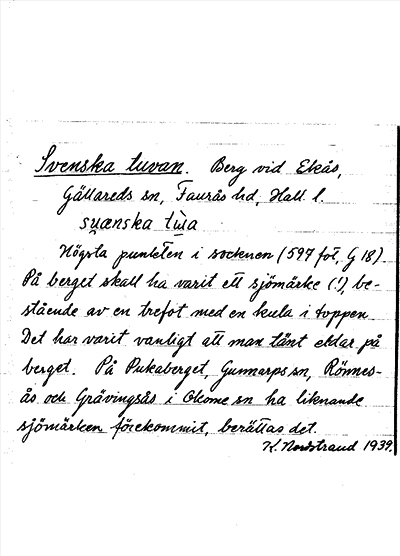 Svenska tuvan. Berg vid Ekås,
Gällareds sn, Faurås hd, Hall. l.
Högsta punkten i socknen (597 fot, G 18).
På berget skall ha varit ett sjömärke (!), be-
stående av en trefot med en kula i toppen.
Det har varit vanligt att man tänt eldar på
berget. På Pukaberget, Gunnarps sn, Rönnes-
ås och Grävingsås i Okome sn ha liknande
sjömärken förekommit, berättas det.
K. Nordstrand 1939.